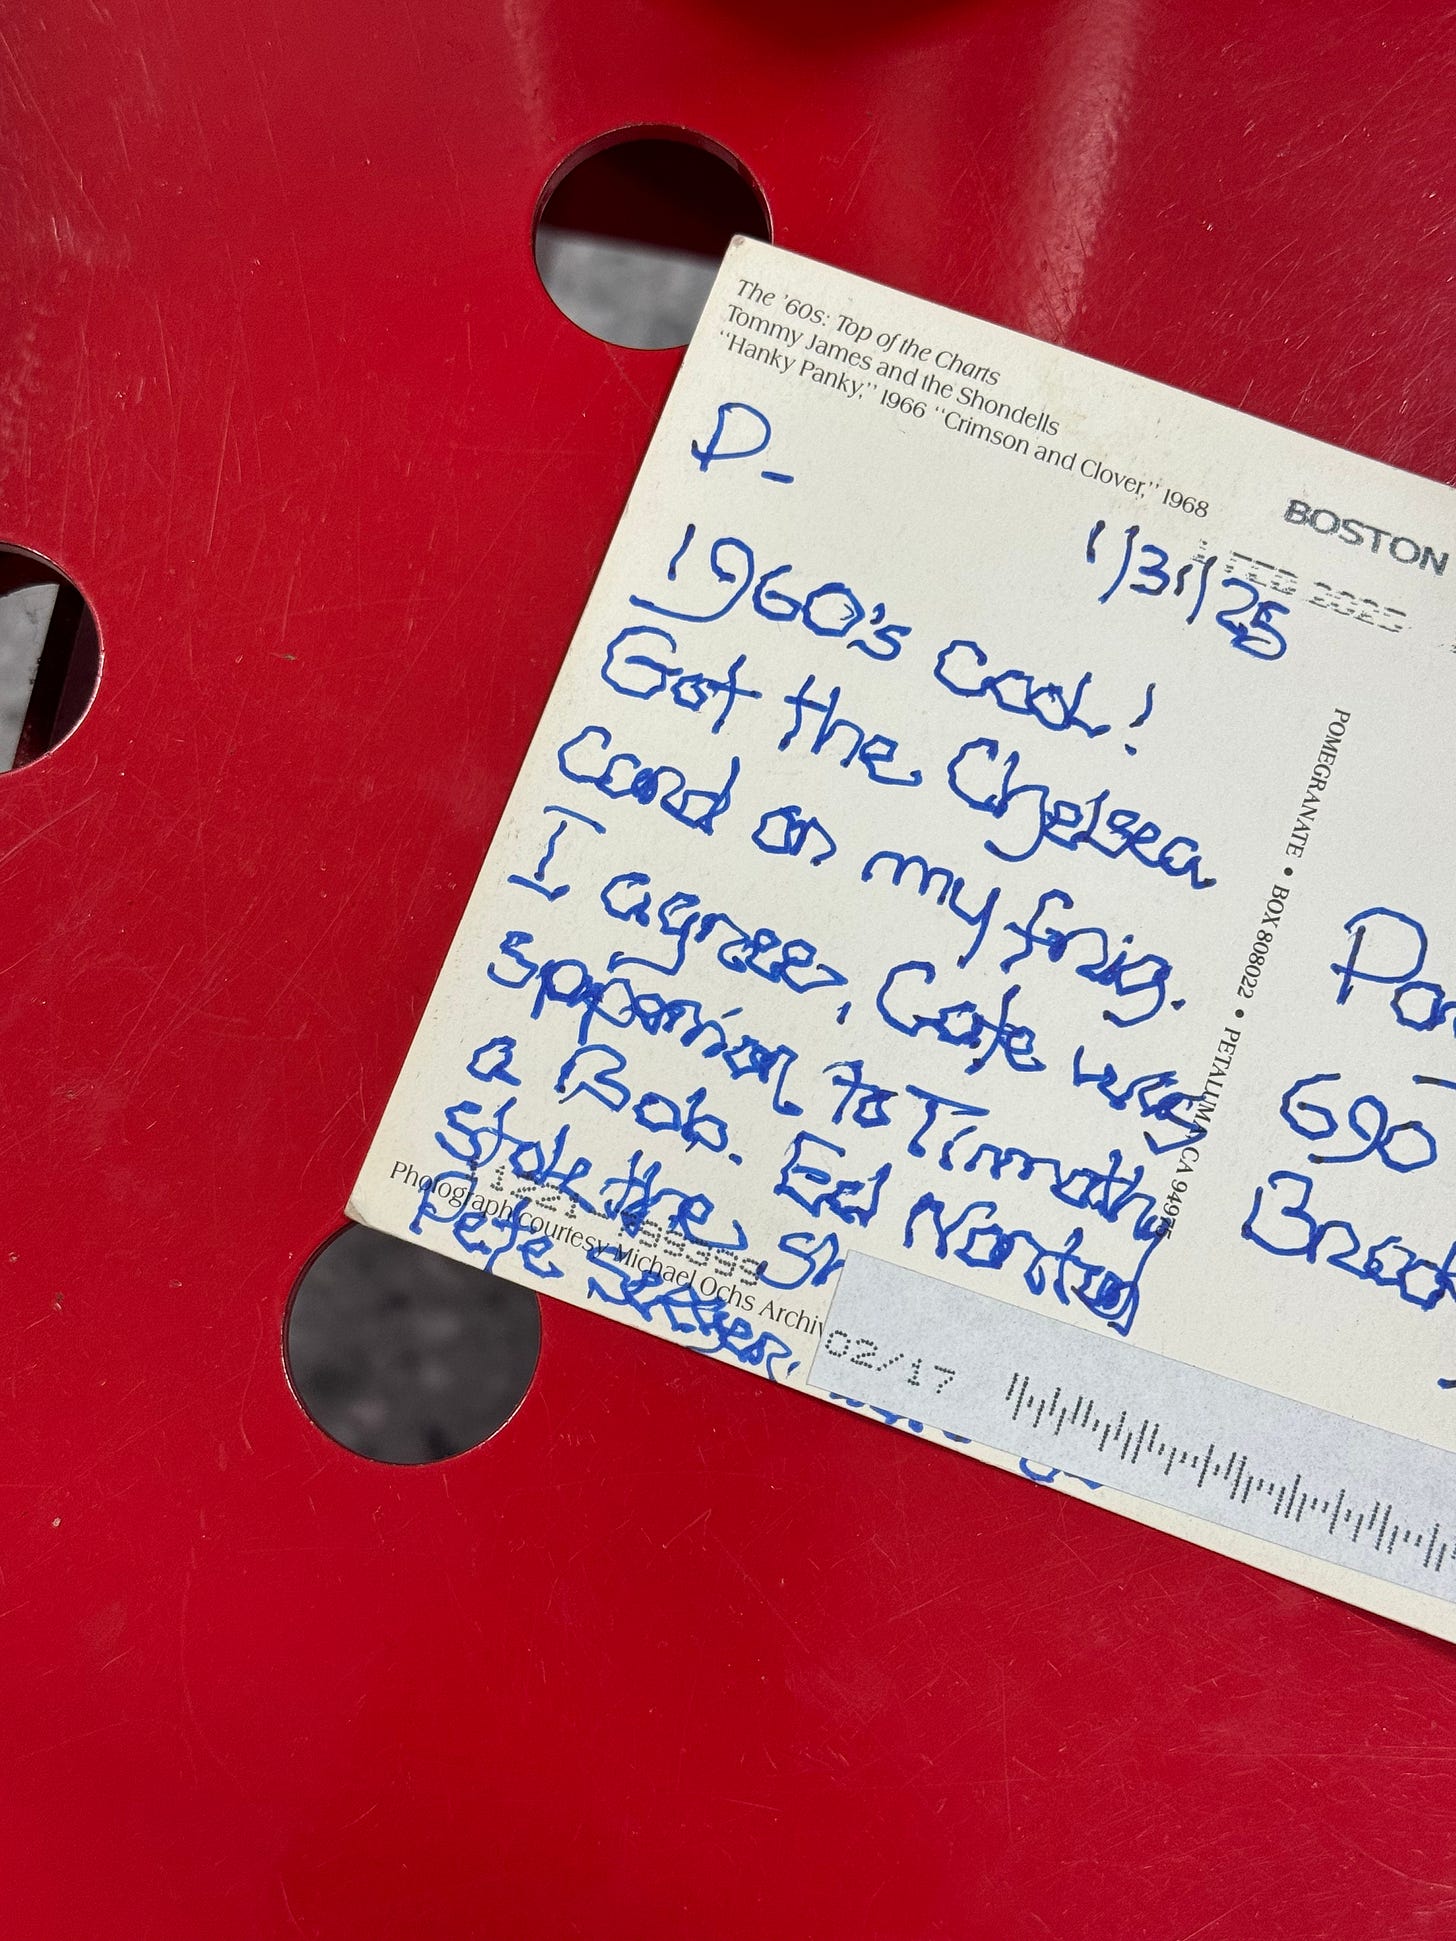 The '60s: Top of the Charts
Tommy James and the Shondells
"Hanky Panky," 1966 "Crimson and Clover," 1968
BOSTON
FEB 2025
P-
1/31/25
1960's Cool!
Got the Chelsea
Card on my frig.
I agree, Cate was
spparior to Timoth
a Bob. Ed Norton
stole the, Sh
Pete Seeger.
11221-199399
Photograph courtesy Michael Ochs Archiv
02/17
POMEGRANATE • BOX 808022 • PETALUMA, CA 94975
690